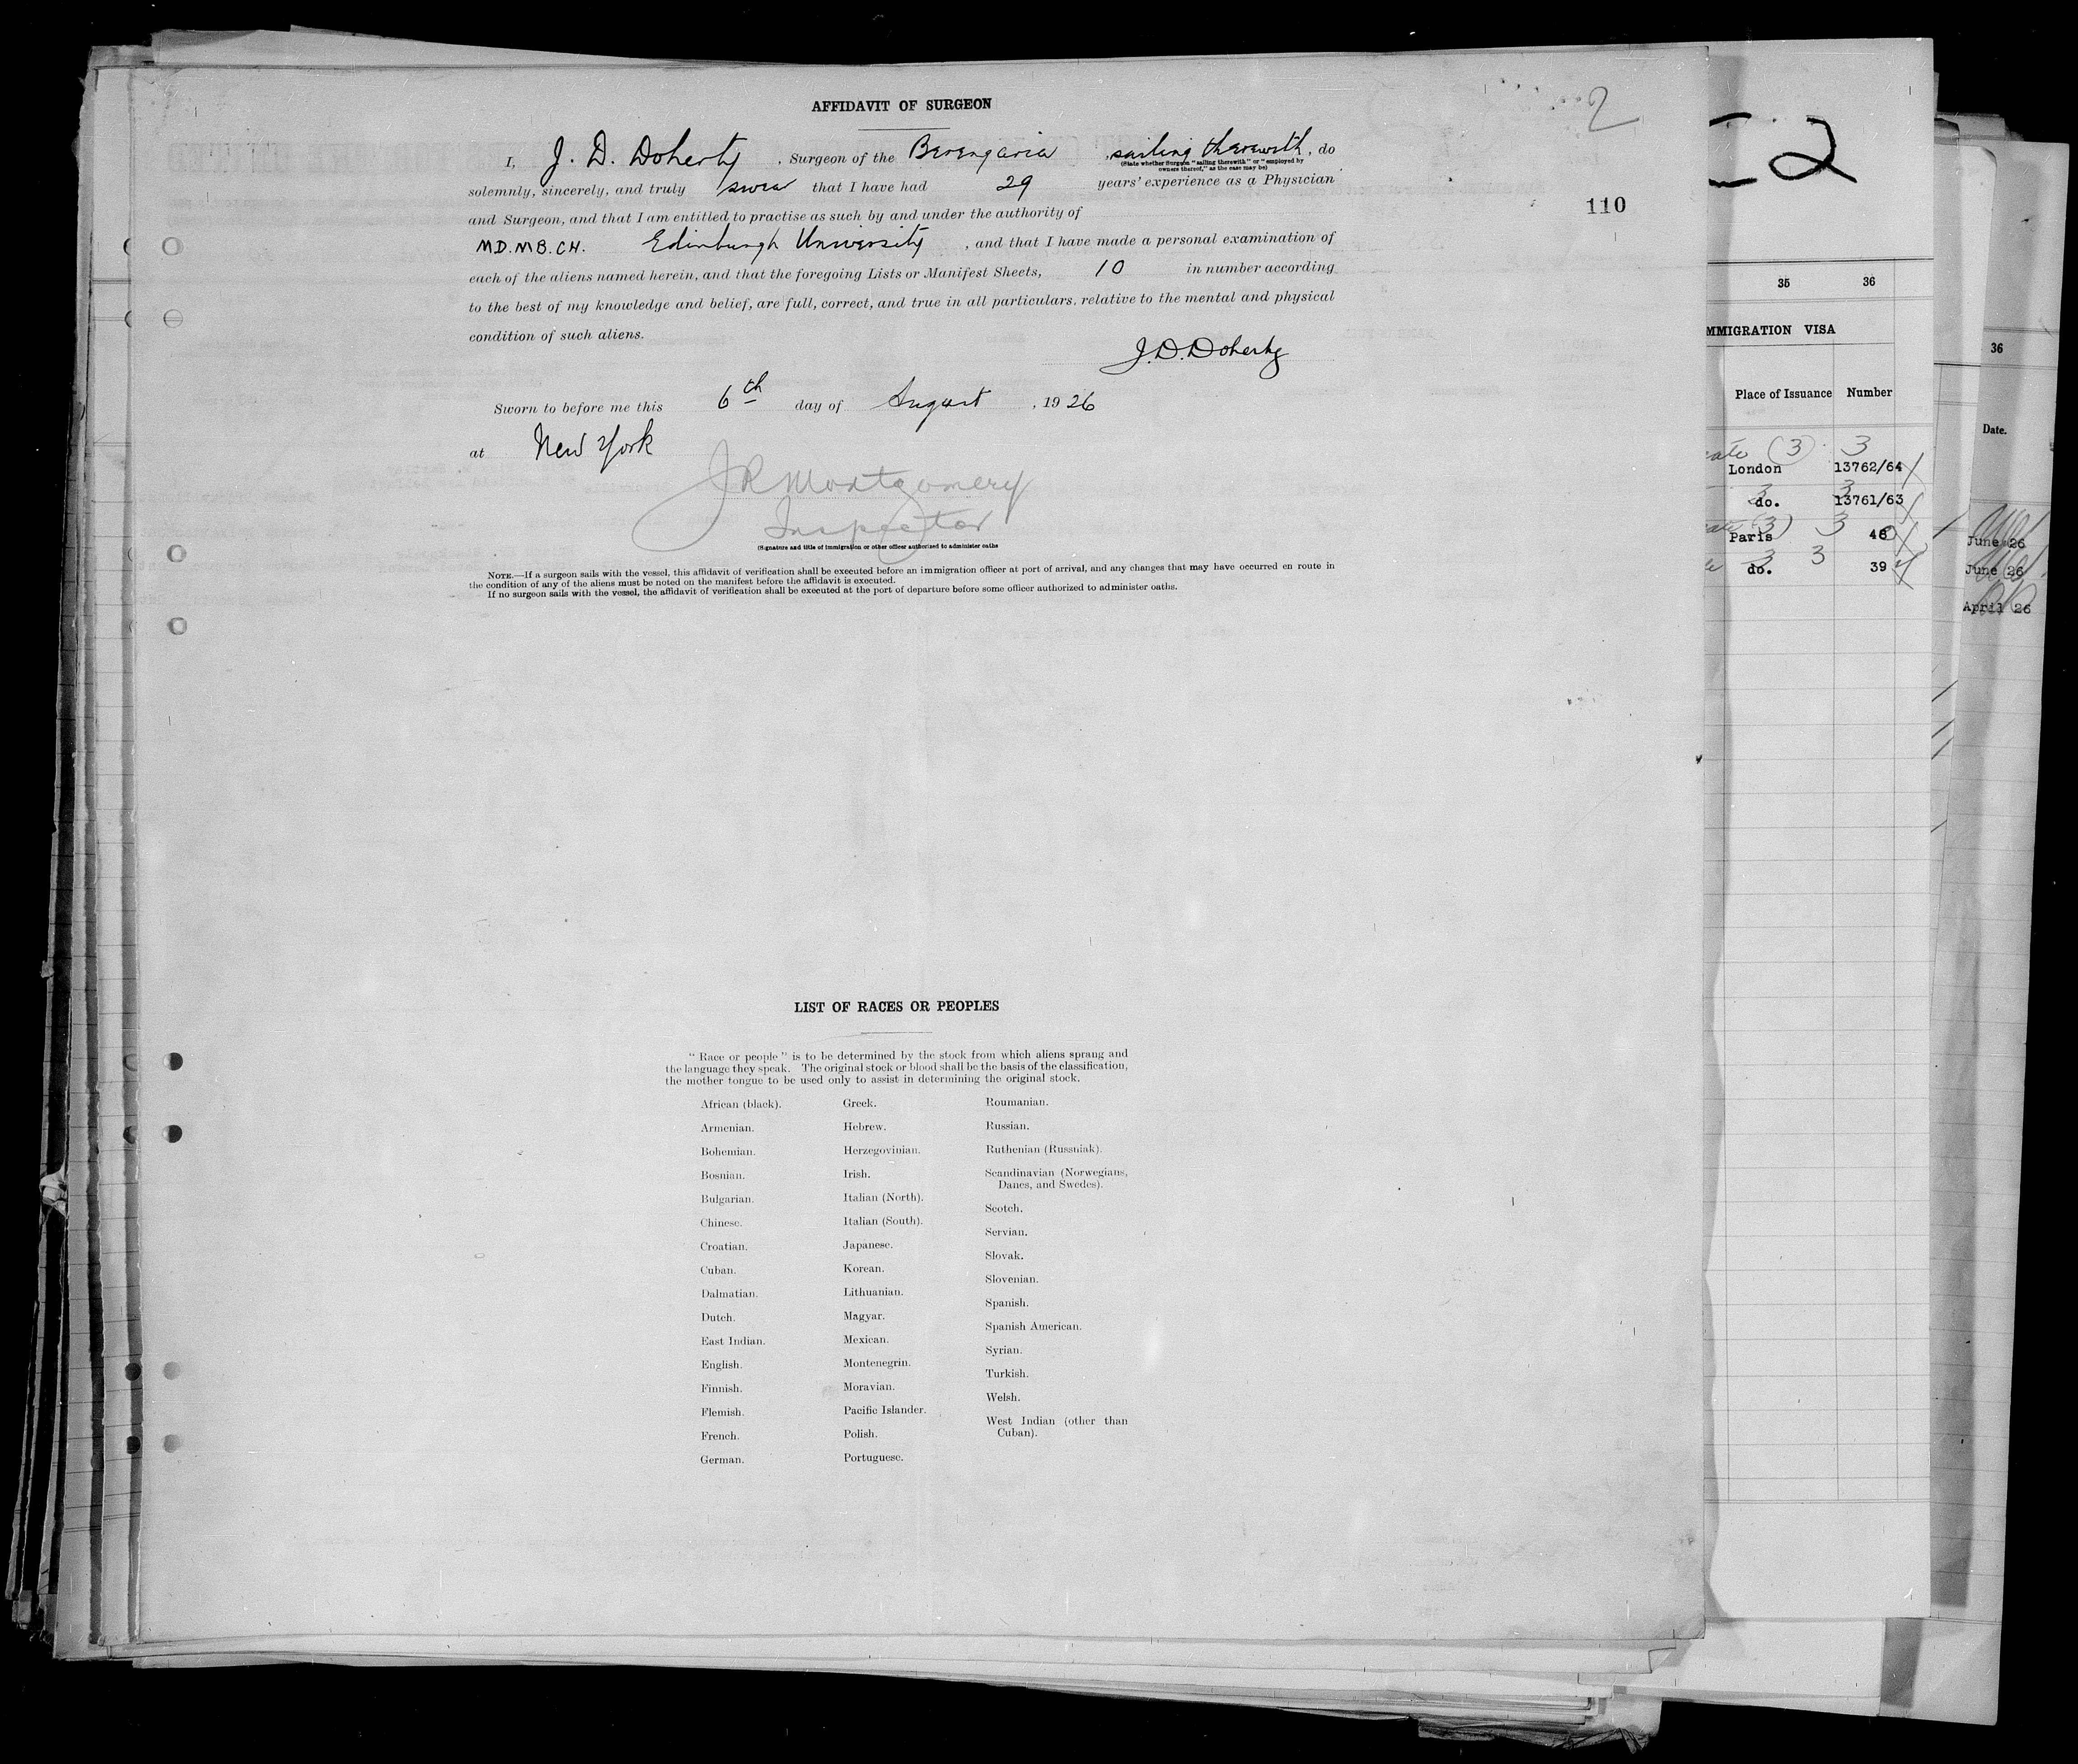 AFFIDAVIT OF SURGEON
2
I, J. D. Doherty, Surgeon of the Berengaria, sailing therewith, do
(State whether Surgeon "sailing therewith" or "employed by
owners thereof," as the case may be)
solemnly, sincerely, and truly swear that I have had 29 years' experience as a Physician
110
and Surgeon, and that I am entitled to practise as such by and under the authority of
M.D. M.B. CH. Edinburgh University, and that I have made a personal examination of
each of the aliens named herein, and that the foregoing Lists or Manifest Sheets, 10 in number according
to the best of my knowledge and belief, are full, correct, and true in all particulars, relative to the mental and physical
condition of such aliens.
J. D. Doherty
Sworn to before me this 6th day of August, 1926
at New York
J R Montgomery
Inspector
(Signature and title of immigration or other officer authorized to administer oaths
NOTE.—If a surgeon sails with the vessel, this affidavit of verification shall be executed before an immigration officer at port of arrival, and any changes that may have occurred en route in
the condition of any of the aliens must be noted on the manifest before the affidavit is executed.
If no surgeon sails with the vessel, the affidavit of verification shall be executed at the port of departure before some officer authorized to administer oaths.
LIST OF RACES OR PEOPLES
"Race or people" is to be determined by the stock from which aliens sprang and
the language they speak. The original stock or blood shall be the basis of the classification,
the mother tongue to be used only to assist in determining the original stock.
African (black).
Armenian.
Bohemian.
Bosnian.
Bulgarian.
Chinese.
Croatian.
Cuban.
Dalmatian.
Dutch.
East Indian.
English.
Finnish.
Flemish.
French.
German.
Greek.
Hebrew.
Herzegovinian.
Irish.
Italian (North).
Italian (South).
Japanese.
Korean.
Lithuanian.
Magyar.
Mexican.
Montenegrin.
Moravian.
Pacific Islander.
Polish.
Portuguese.
Roumanian.
Russian.
Ruthenian (Russniak).
Scandinavian (Norwegians,
Danes, and Swedes).
Scotch.
Servian.
Slovak.
Slovenian.
Spanish.
Spanish American.
Syrian.
Turkish.
Welsh.
West Indian (other than
Cuban).
2
35 36
MMIGRATION VISA
Place of Issuance Number
(3) 3
London 13762/64
3 3
do. 13761/63
(3) 3
Paris
3 3
do. 39
36
Date.
June 26
June 26
April 26